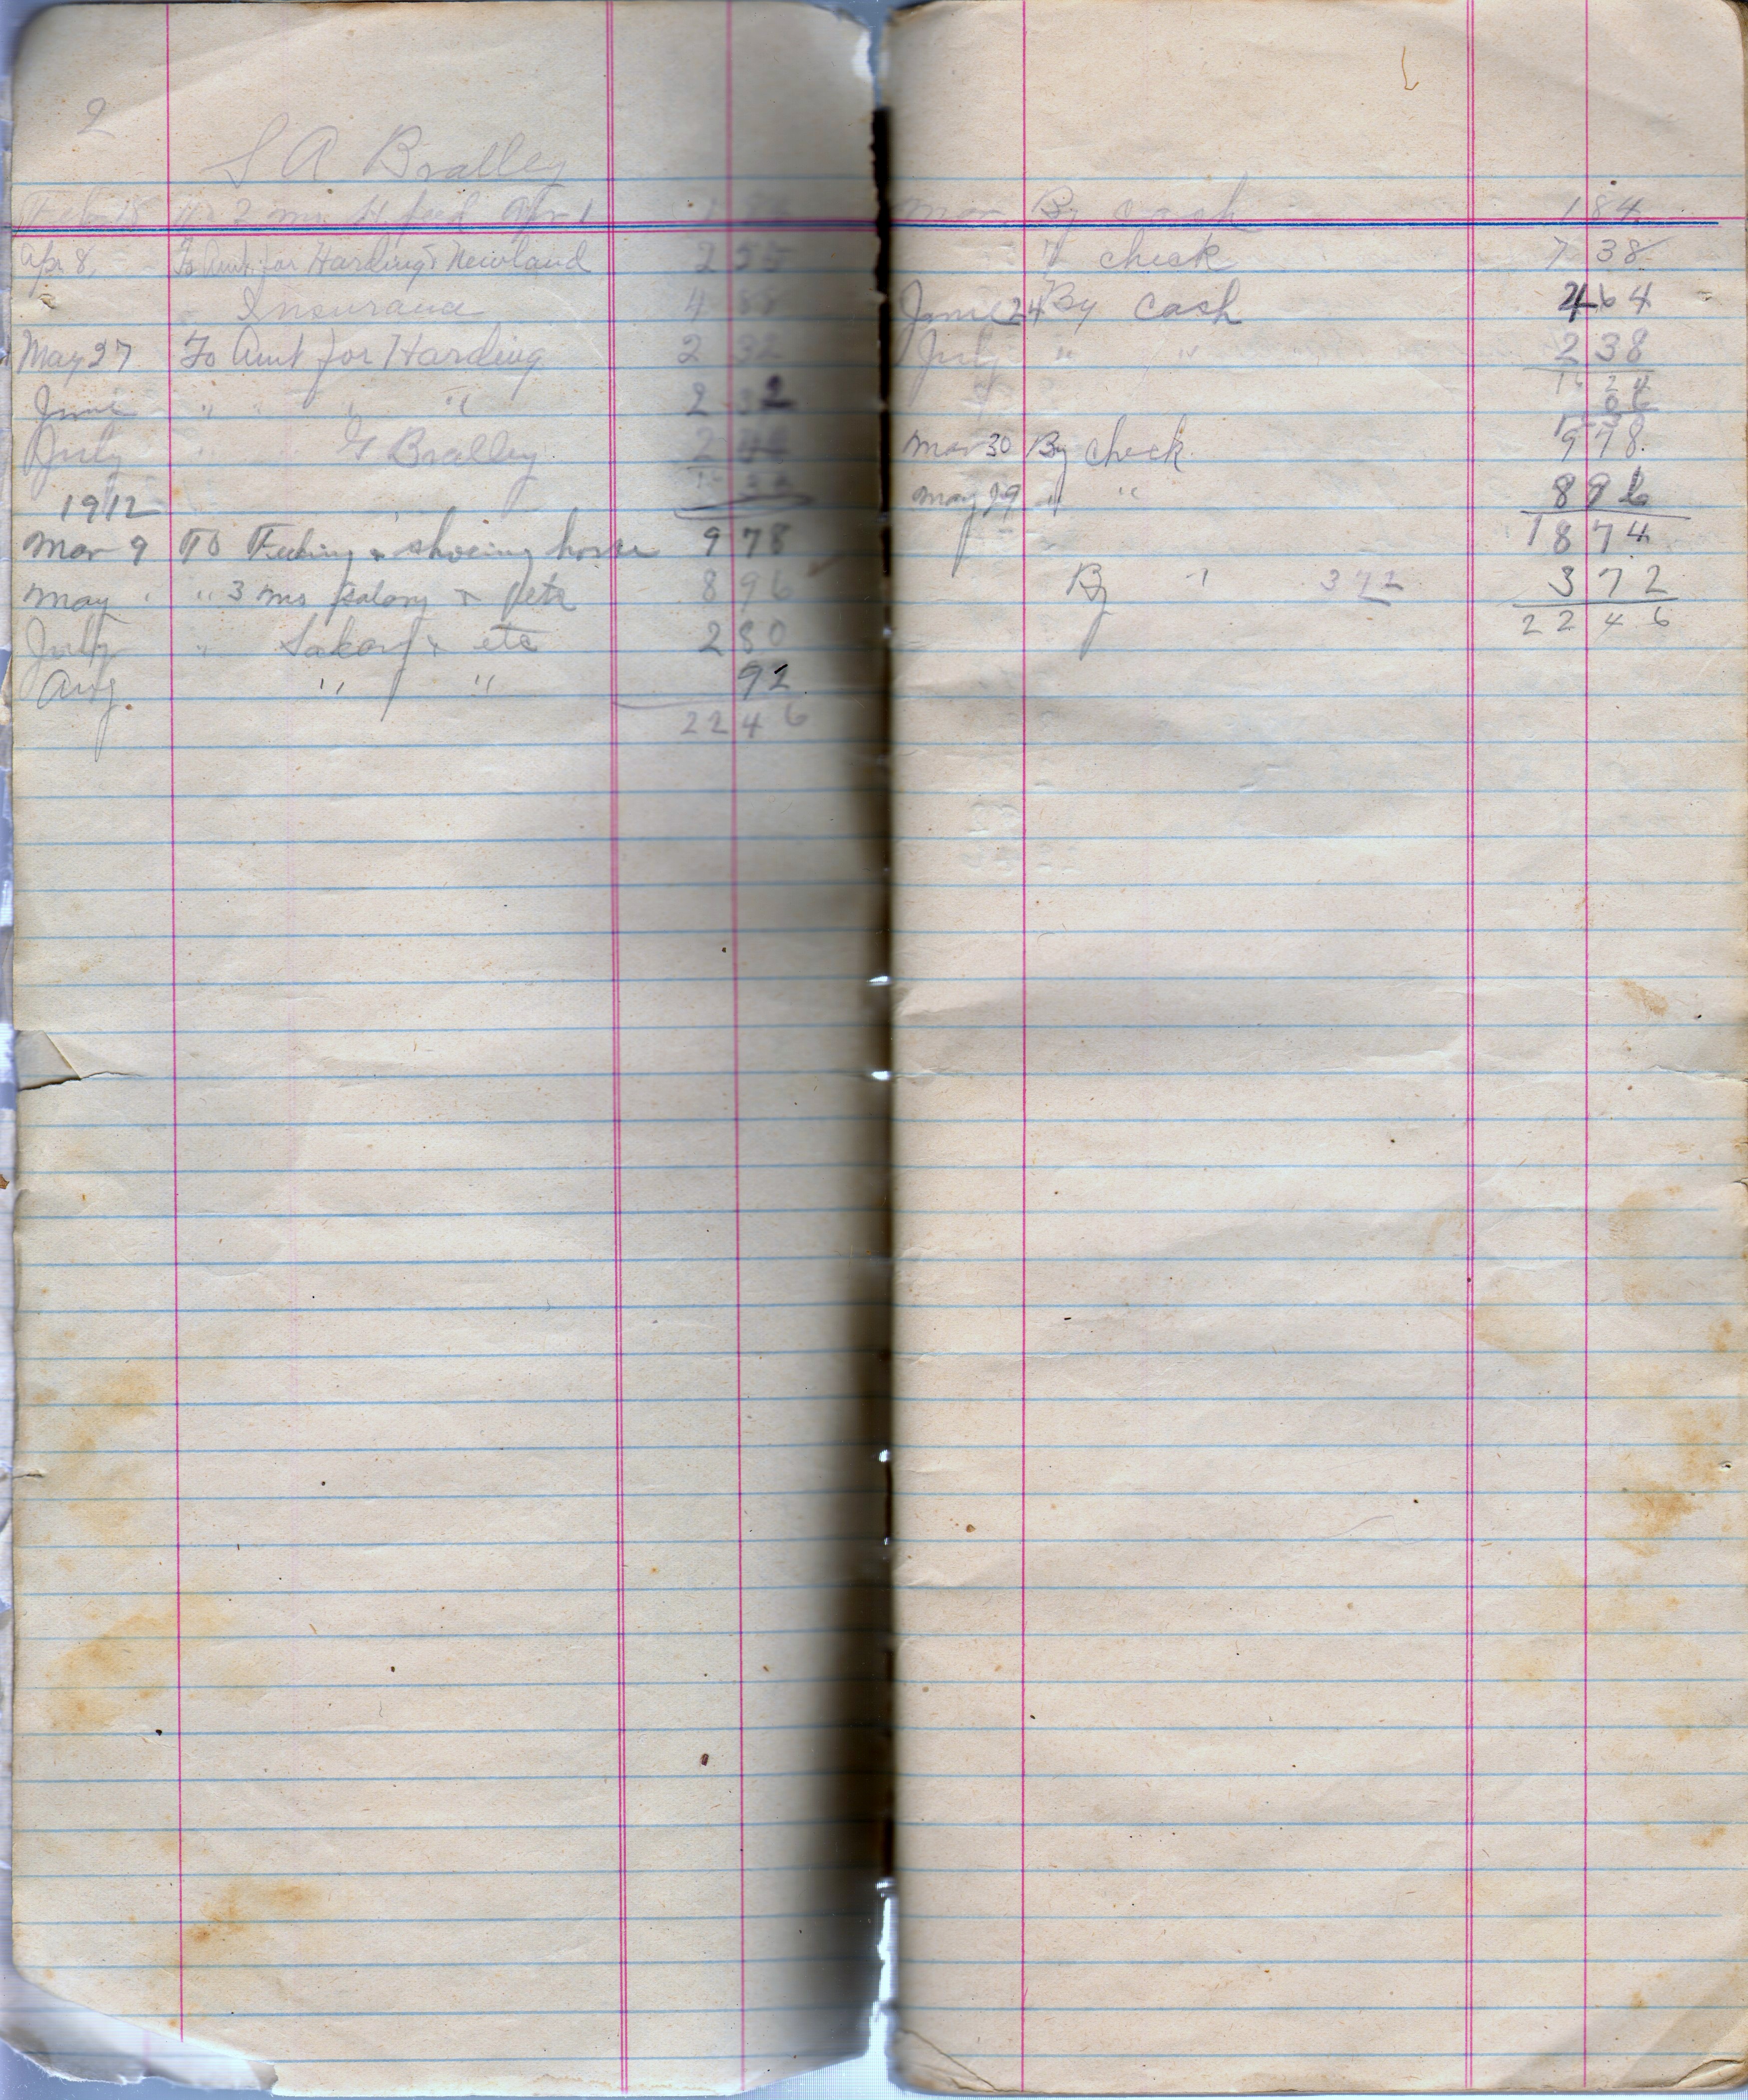 2
S A Bralley
2 mo. H. feed Apr 1
Apr 8, To Amt for Harding & Newland 2 55
Insurance 4 88
May 27 To Amt for Harding 2 32
June " " " " 2 32
July " G Bralley 2
1912
Mar 9 TO Feeding & shoeing horse 9 78
May " " 3 mo salary & fetc 8 96
July " Salary & etc 2 80
Aug " " 92
22 4 6
Mar By cash 1 84
" check 7 38
June 24 By cash 4 64
July " " 2 38
16 24
Mar 30 By check 9 78
May 29 " " 8 96
18 74
By " 372 3 72
22 4 6